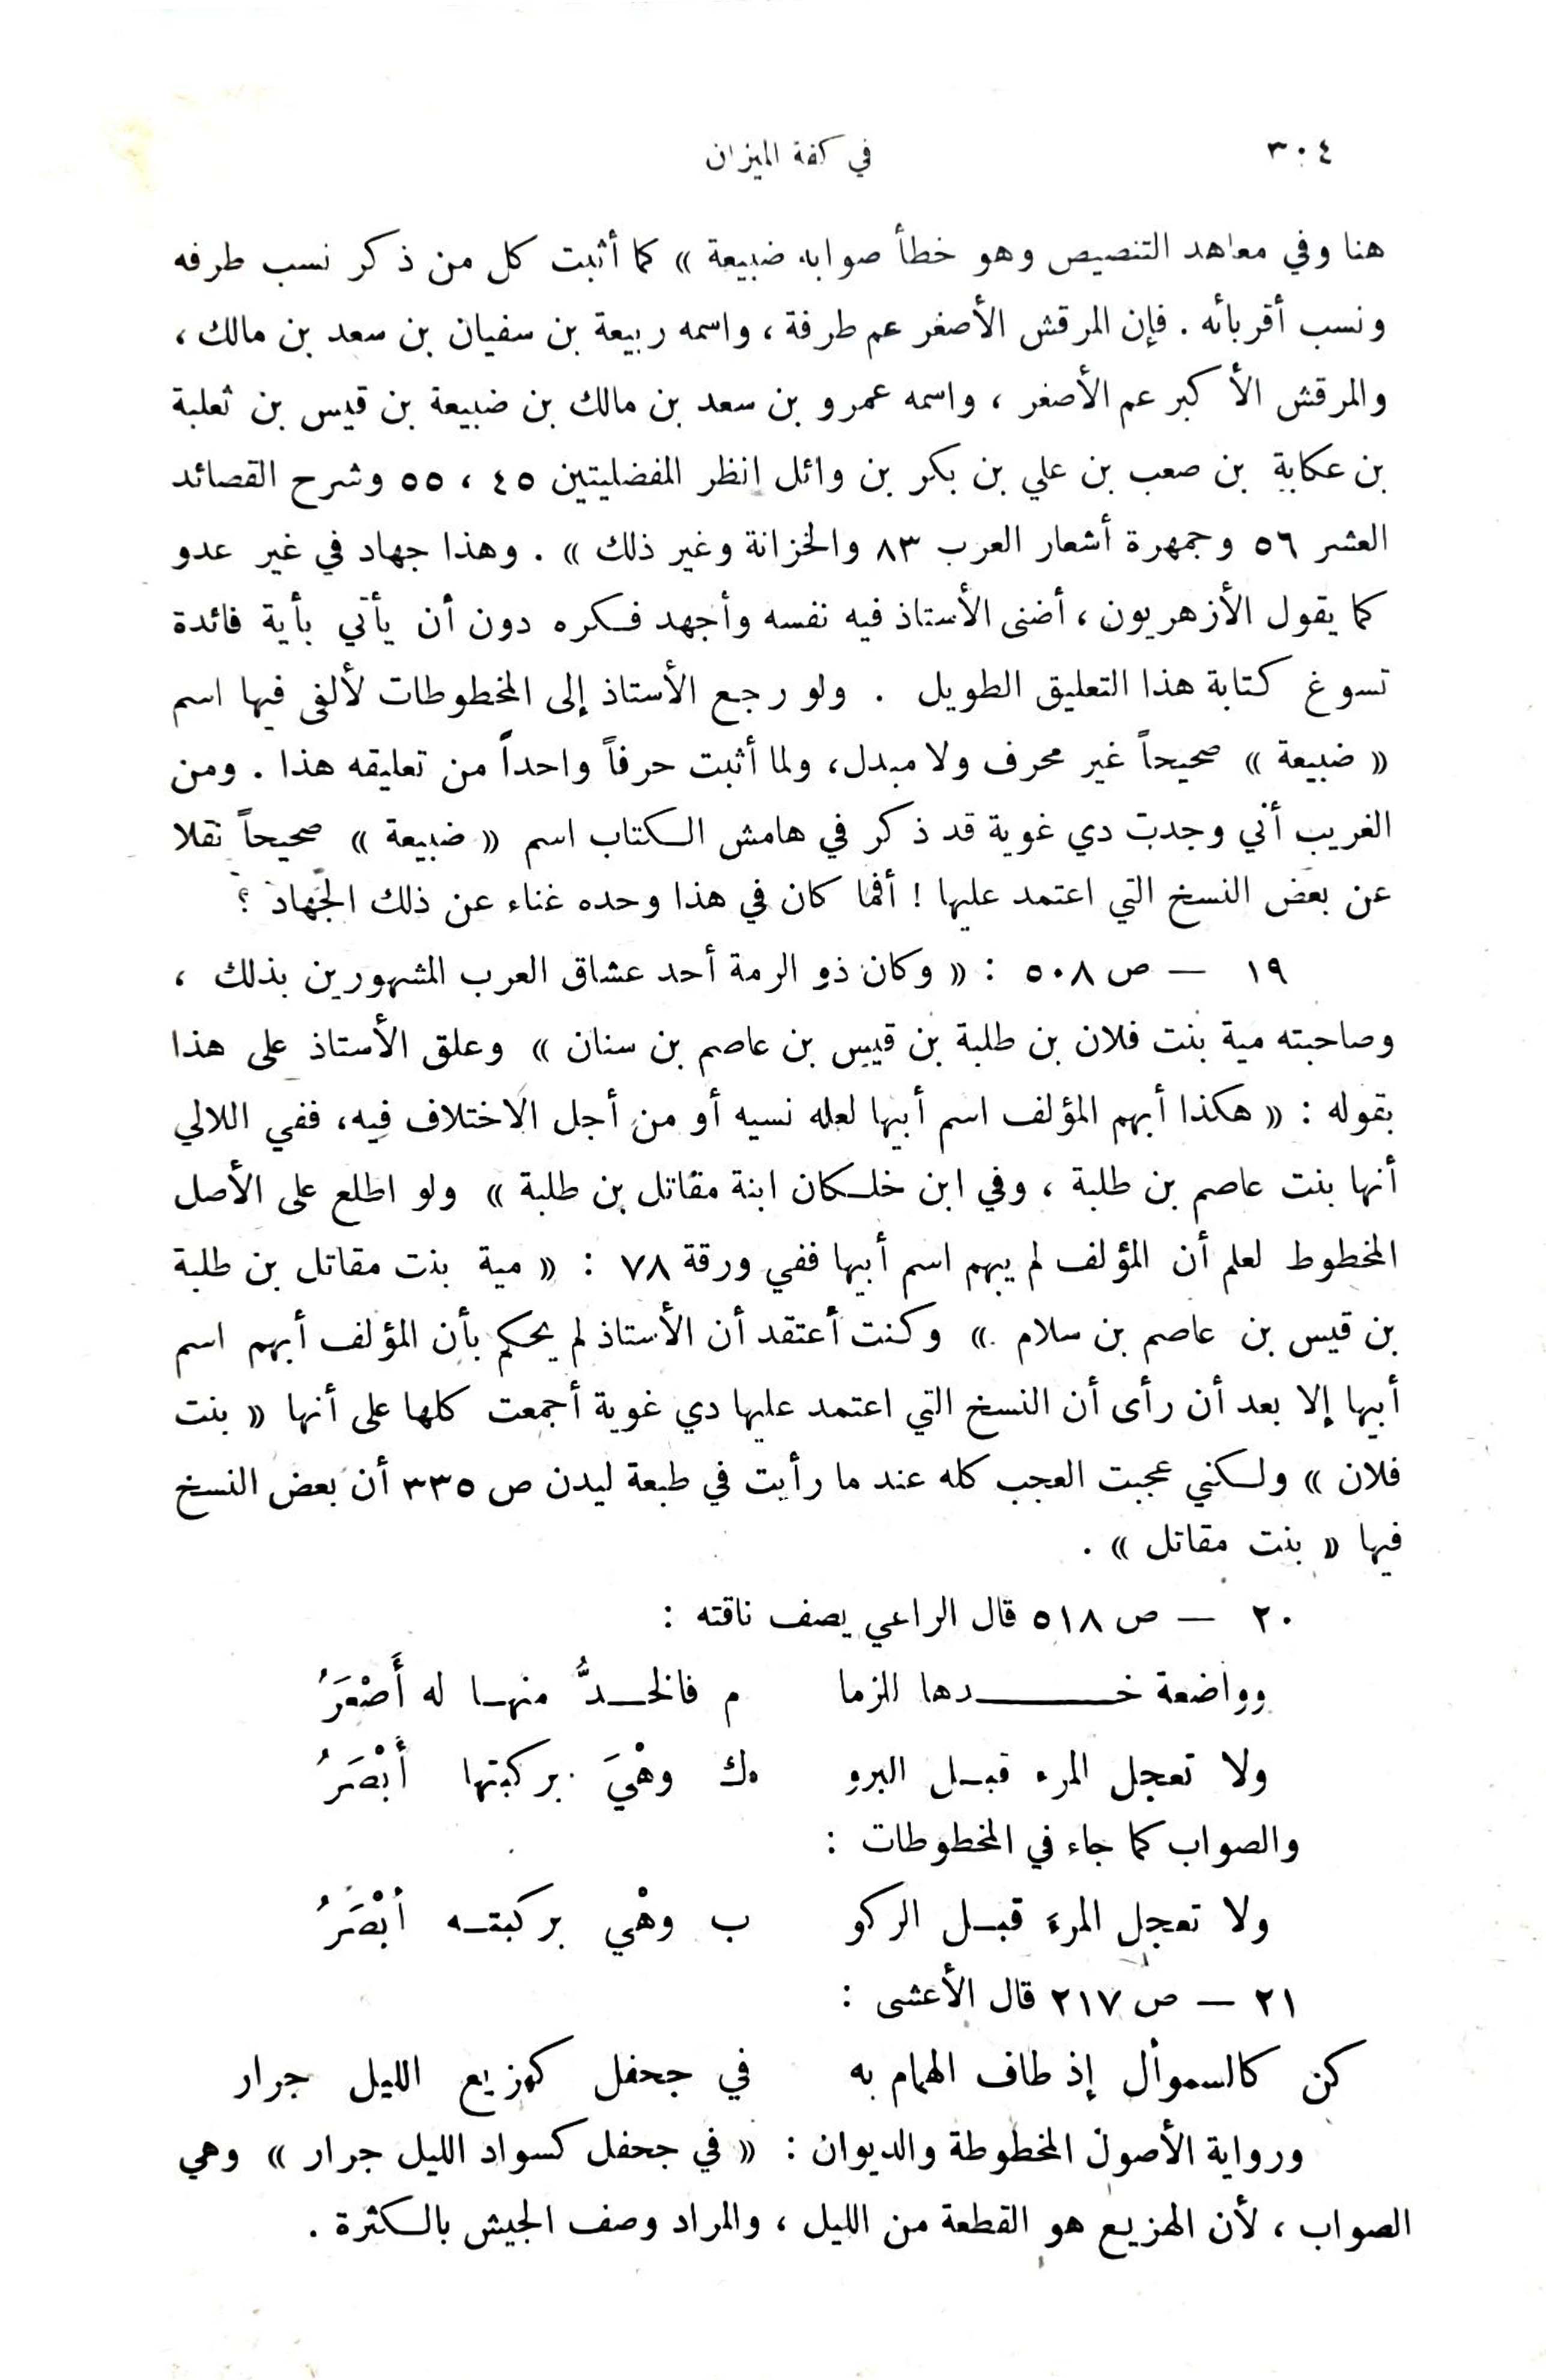 ٣٠٤ في كفة الميزان
هنا وفي معاهد التنصيص وهو خطأ صوابه ضبيعة » كما أثبت كل من ذكر نسب طرفه
ونسب أقربائه . فإن المرقش الأصغر عم طرفة ، واسمه ربيعة بن سفيان بن سعد بن مالك ،
والمرقش الأكبر عم الأصغر ، واسمه عمرو بن سعد بن مالك بن ضبيعة بن قيس بن ثعلبة
بن عكابة بن صعب بن علي بن بكر بن وائل انظر المفضليتين ٤٥ ، ٥٥ وشرح القصائد
العشر ٥٦ وجمهرة أشعار العرب ٨٣ والخزانة وغير ذلك » . وهذا جهاد في غير عدو
كما يقول الأزهريون ، أضنى الأستاذ فيه نفسه وأجهد فكره دون أن يأتي بأية فائدة
تسوغ كتابة هذا التعليق الطويل . ولو رجع الأستاذ إلى المخطوطات لألفى فيها اسم
« ضبيعة » صحيحاً غير محرف ولا مبدل ، ولما أثبت حرفاً واحداً من تعليقه هذا . ومن
الغريب أني وجدت دي غوية قد ذكر في هامش الكتاب اسم « ضبيعة » صحيحاً نقلا
عن بعض النسخ التي اعتمد عليها ! أفما كان في هذا وحده غناء عن ذلك الجهاد ؟
١٩ — ص ٥٠٨ : « وكان ذو الرمة أحد عشاق العرب المشهورين بذلك ،
وصاحبته مية بنت فلان بن طلبة بن قيس بن عاصم بن سنان » وعلق الأستاذ على هذا
بقوله : « هكذا أبهم المؤلف اسم أبيها لعله نسيه أو من أجل الاختلاف فيه ، ففي اللالي
أنها بنت عاصم بن طلبة ، وفي ابن خلكان ابنة مقاتل بن طلبة » ولو اطلع على الأصل
المخطوط لعلم أن المؤلف لم يبهم اسم أبيها ففي ورقة ٧٨ : « مية بنت مقاتل بن طلبة
بن قيس بن عاصم بن سلام .» وكنت أعتقد أن الأستاذ لم يحكم بأن المؤلف أبهم اسم
أبيها إلا بعد أن رأى أن النسخ التي اعتمد عليها دي غوية أجمعت كلها على أنها « بنت
فلان » ولكني عجبت العجب كله عند ما رأيت في طبعة ليدن ص ٣٣٥ أن بعض النسخ
فيها « بنت مقاتل » .
٢٠ — ص ٥١٨ قال الراعي يصف ناقته :
وواضعة خدها للزما م فالخدُّ منها له أَصْعَرُ
ولا تعجل المرء قبل البرو ك وهْيَ بركبتها أَبْصَرُ
والصواب كما جاء في المخطوطات :
ولا تعجل المرءَ قبل الركو ب وهْي بركبته أبْصَرُ
٢١ — ص ٢١٧ قال الأعشى :
كن كالسموأل إذ طاف الهمام به في جحفل كهزيع الليل جرار
ورواية الأصول المخطوطة والديوان : « في جحفل كسواد الليل جرار » وهي
الصواب ، لأن الهزيع هو القطعة من الليل ، والمراد وصف الجيش بالكثرة .